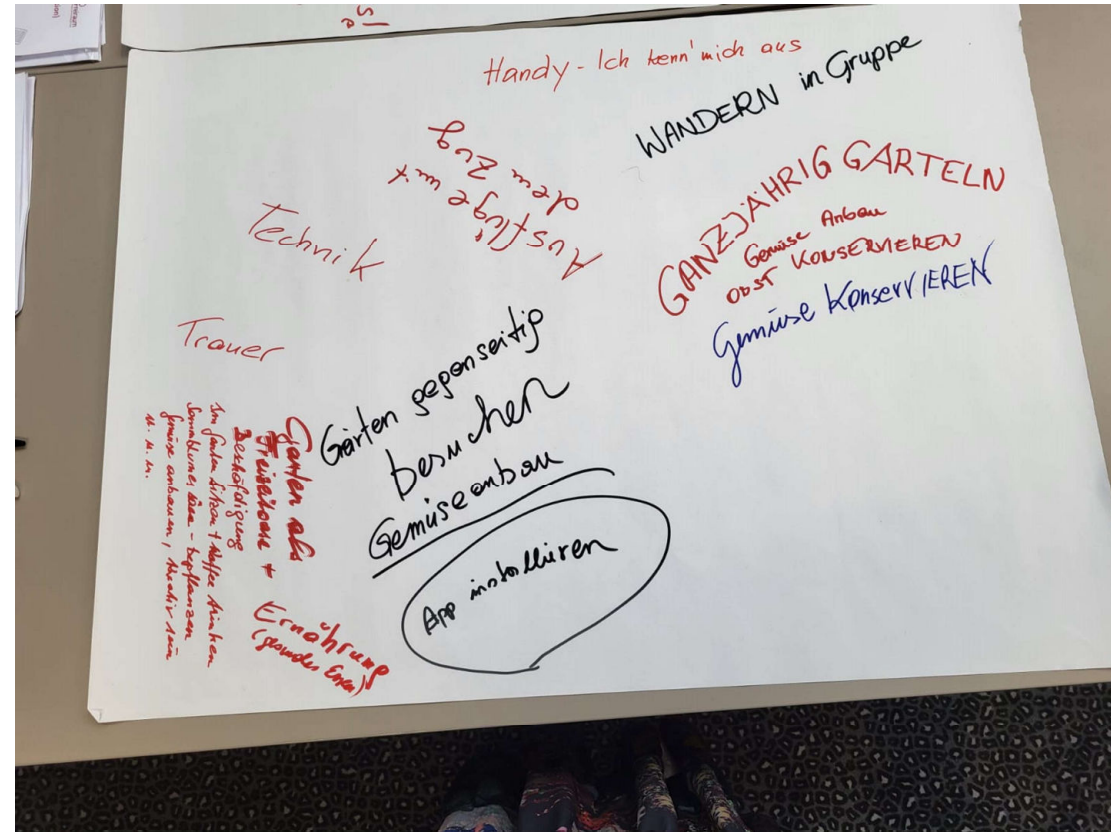 Handy - Ich kenn' mich aus
WANDERN in Gruppe
Ausflüge mit
dem Zug
Technik
GANZJÄHRIG GARTELN
Gemüse Anbau
OBST KONSERVIEREN
Gemüse KonservIEREN
Trauer
Gärten gegenseitig
besuchen
Gemüseanbau
App installieren
Garten als
+
Beschäftigung
Im Garten sitzen + Kaffee trinken
- bepflanzen
Gemüse anbauen, kreativ sein
u. u. u.
Ernährung
(gesundes Essen)